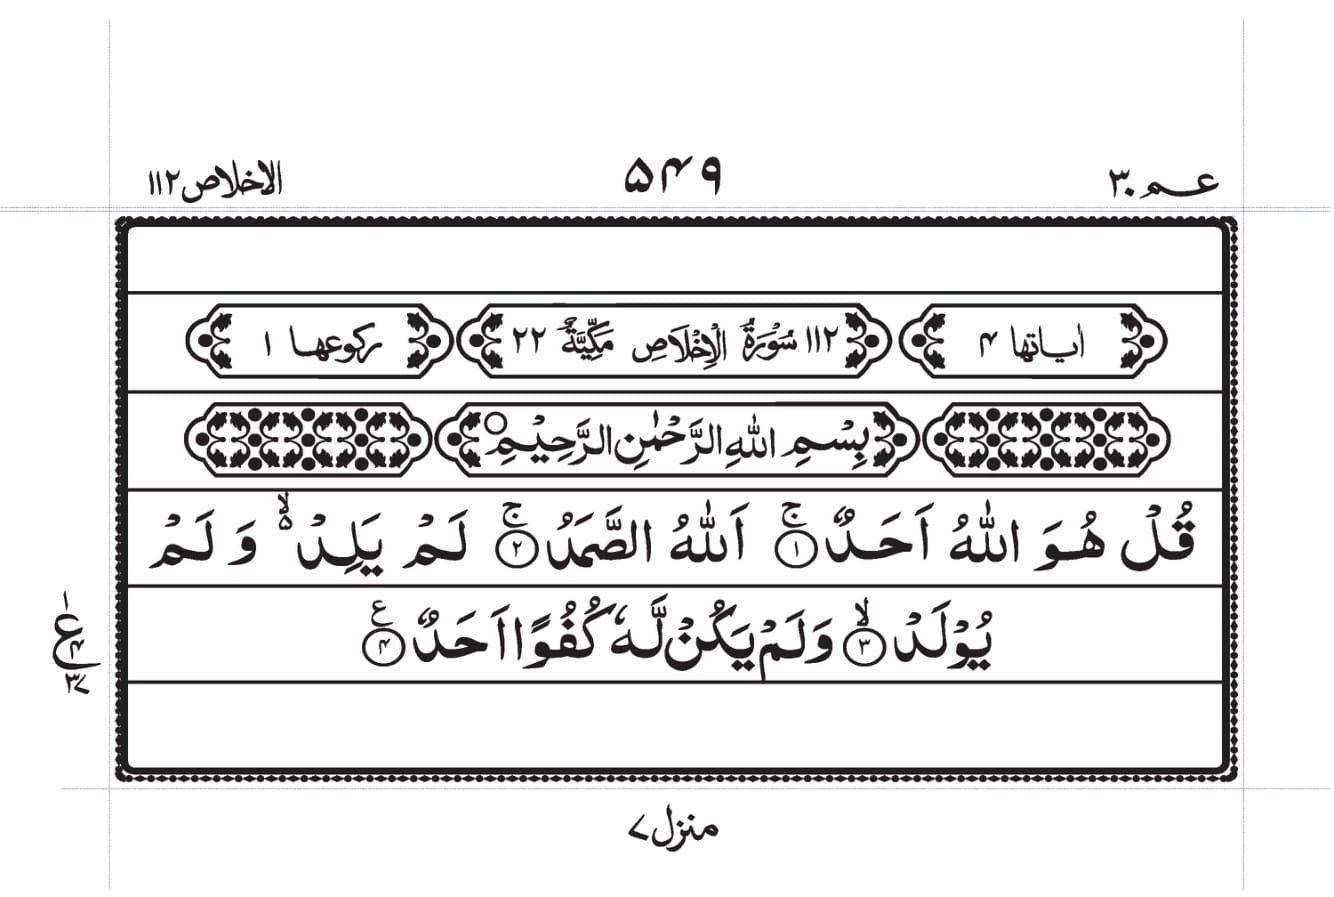 عم ۳۰
۵۴۹
الاخلاص ۱۱۲
اٰیاتها ۴
۱۱۲ سُوْرَةُ الْاِخْلَاصِ مَكِّيَّةٌ ۲۲
ركوعها ۱
بِسْمِ اللهِ الرَّحْمٰنِ الرَّحِيْمِ○
قُلْ هُوَ اللّٰهُ اَحَدٌ ۚ﴿۱﴾ اَللّٰهُ الصَّمَدُ ۚ﴿۲﴾ لَمْ يَلِدْ ۙ۬ وَ لَمْ
يُوْلَدْ ۙ﴿۳﴾ وَلَمْ يَكُنْ لَّهٗ كُفُوًا اَحَدٌ ﴿۴﴾ ع
۱
ع
۴
۳۷
منزل ۷